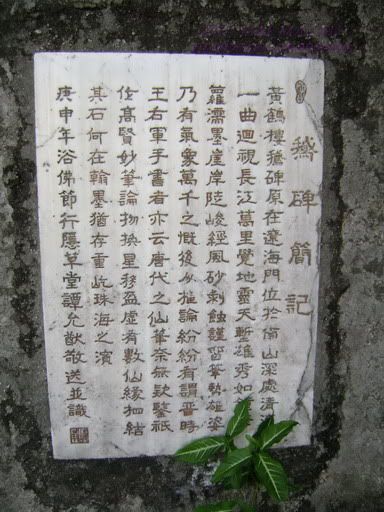 鵞碑簡記
黃鶴樓鵞碑原在遼海門位於南山深處清
一曲迴視長江萬里覺地靈天塹雄秀如
蘿濡墨崖岸陡峻經風砂剝蝕謹留筆執雄姿
乃有氣象萬千之慨後人推論紛紛有謂晉時
王右軍手書者亦云唐代之仙華奈無欵鑒祇
任高賢妙筆論物換星移盈虛有數仙緣結
其石何在翰墨猶存重屹珠海之濱
庚申年浴佛節行隱草堂譚允猷敬送並識